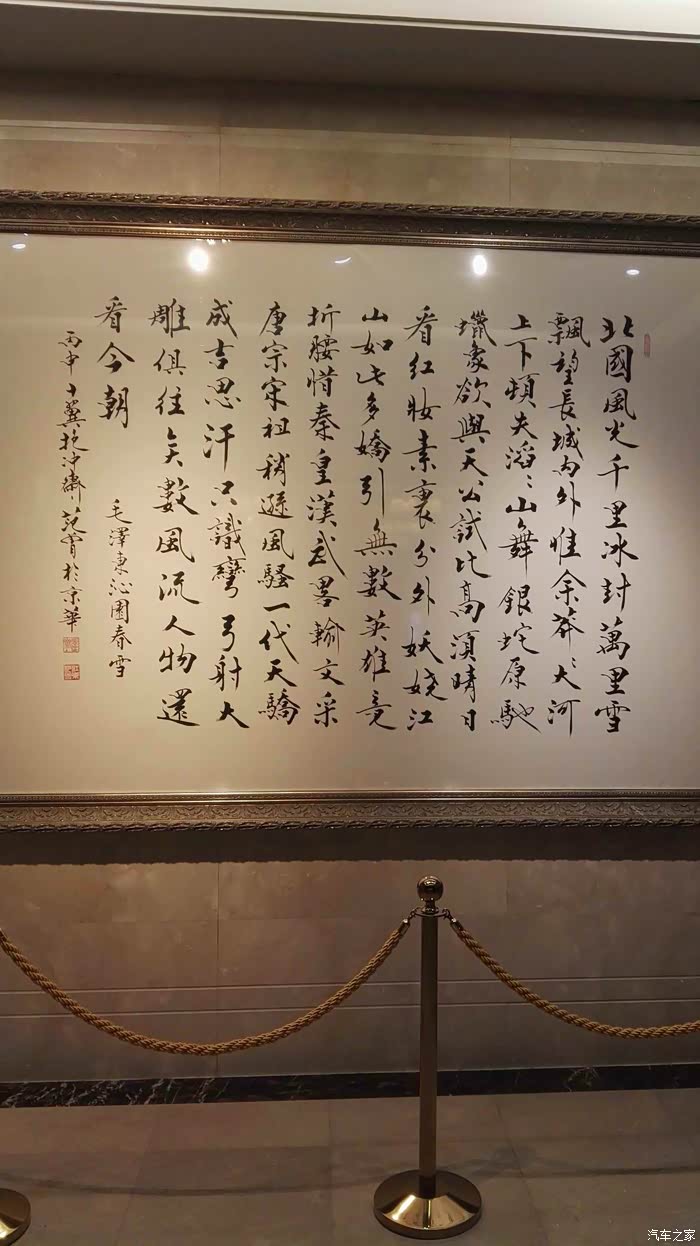 北國風光千里冰封萬里雪
飄望長城內外惟余莽〻大河
上下頓失滔〻山舞銀蛇原馳
蠟象欲與天公試比高須晴日
看紅妝素裹分外妖嬈江
山如此多嬌引無數英雄竞
折腰惜秦皇漢武畧輸文采
唐宗宋祖稍遜風騷一代天驕
成吉思汗只識彎弓射大
雕俱往矣數風流人物還
看今朝
毛澤東沁園春雪
丙申十翼抱冲齋范曾於京華
汽车之家